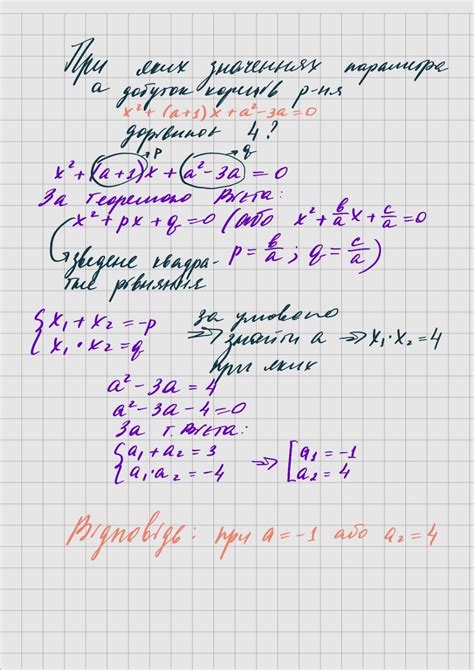 При яких значеннях параметра
а добуток коренів р-ня
x² + (a+1)x + a² - 3a = 0
дорівнює 4?
p q
x² + (a+1)x + (a² - 3a) = 0
За теоремою Вієта:
x² + px + q = 0 (або x² + b/a x + c/a = 0
зведене квадра- p = b/a ; q = c/a)
тне рівняння
{x₁ + x₂ = -p за умовою
{x₁ · x₂ = q => знайти а → x₁·x₂ = 4
при яких
a² - 3a = 4
a² - 3a - 4 = 0
За т. Вієта:
{a₁ + a₂ = 3 => [a₁ = -1
{a₁·a₂ = -4 [a₂ = 4
Відповідь: при a = -1 або a₂ = 4